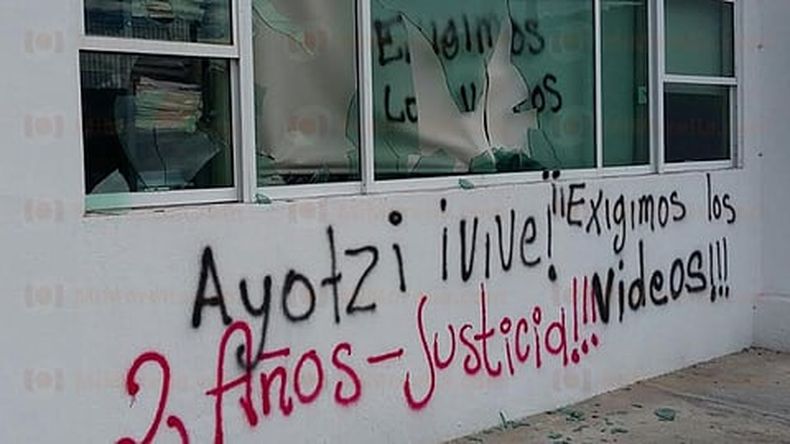 Exigimos
Los videos
Ayotzi ¡vive! ¡¡Exigimos los
videos!!!
2 Años - Justicia!!!